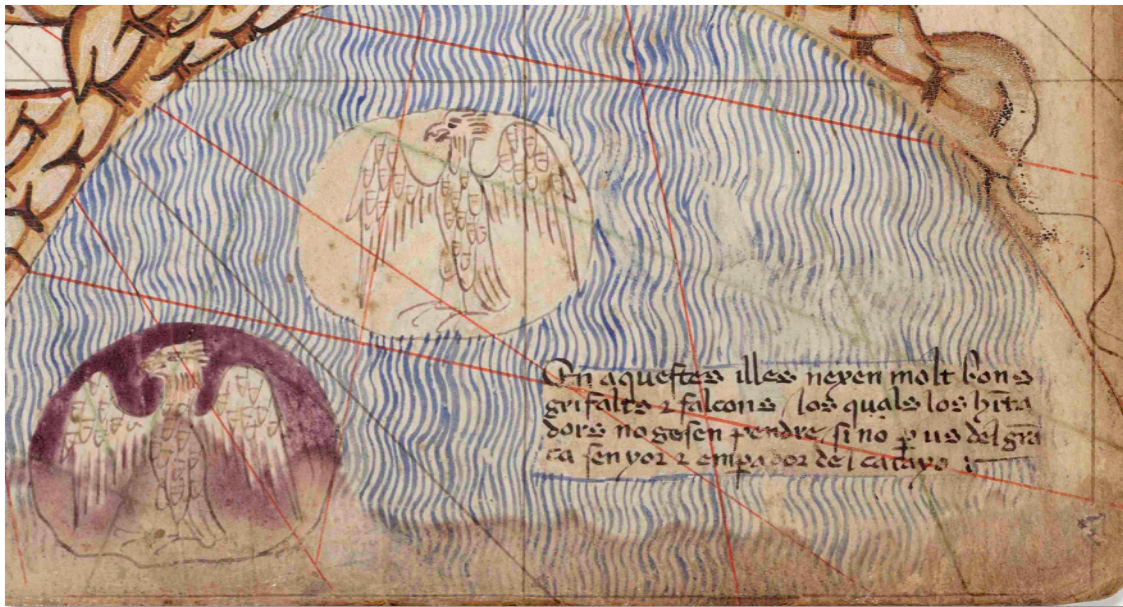 En aquestes illes nexen molt bons
grifalts ⁊ falcons / los quals los hīta
dors no gosen pendre, si no ꝑ us del grā
ca senyor ⁊ emꝑador del catayo